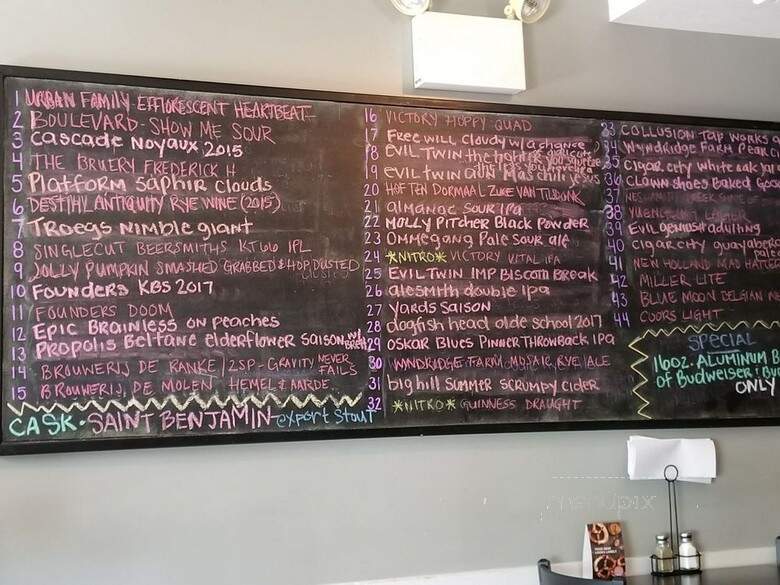 1 URBAN FAMILY EFFLORESCENT HEARTBEAT
2 BOULEVARD - SHOW ME SOUR
3 Cascade Noyaux 2015
4 THE BRUERY FREDERICK H
5 Platform Saphir Clouds
6 DESTIHL ANTIQUITY RYE WINE (2015)
7 Troegs nimble giant
8 SINGLECUT BEERSMITHS KT66 IPL
9 JOLLY PUMPKIN SMASHED GRABBED & HOP DUSTED
10 Founders KBS 2017
11 FOUNDERS DOOM
12 Epic Brainless on peaches
13 Propolis Beltane elderflower saison w/ Breh
14 BROUWERIJ DE RANKE / 2SP - GRAVITY NEVER FAILS
15 BROUWERIJ DE MOLEN HEMEL & AARDE
CASK - SAINT BENJAMIN export Stout
16 VICTORY HOPPY QUAD
17 Free will Cloudy w/ a chance
18 EVIL TWIN the
19 evil twin
20 HOF TEN DORMAAL ZURE VAN TILDONK
21 almanac SOUR IPA
22 MOLLY PITCHER Black Powder
23 Ommegang Pale Sour ale
24 *NITRO* VICTORY VITAL IPA
25 EVIL TWIN IMP BISCOTTI BREAK
26 alesmith double ipa
27 yards Saison
28 dogfish head olde school 2017
29 OSKAR BLUES PINNER THROWBACK IPA
30 WYNDRIDGE FARM MOSAIC RYE ALE
31 big hill SUMMER SCRUMPY CIDER
32 *NITRO* GUINNESS DRAUGHT
33 COLLUSION TAP WORKS
34 Wyndridge Farm Pear
35 Cigar city white oak
36 Clown shoes Baked Goo
37
38 YUENGLING LAGER
39 Evil genius adulting
40 cigar city guayabera pale
41 NEW HOLLAND MAD HATTER
42 MILLER LITE
43 BLUE MOON BELGIAN
44 COORS LIGHT
SPECIAL
16oz. ALUMINUM B
of Budweiser + Bu
ONLY
menupix